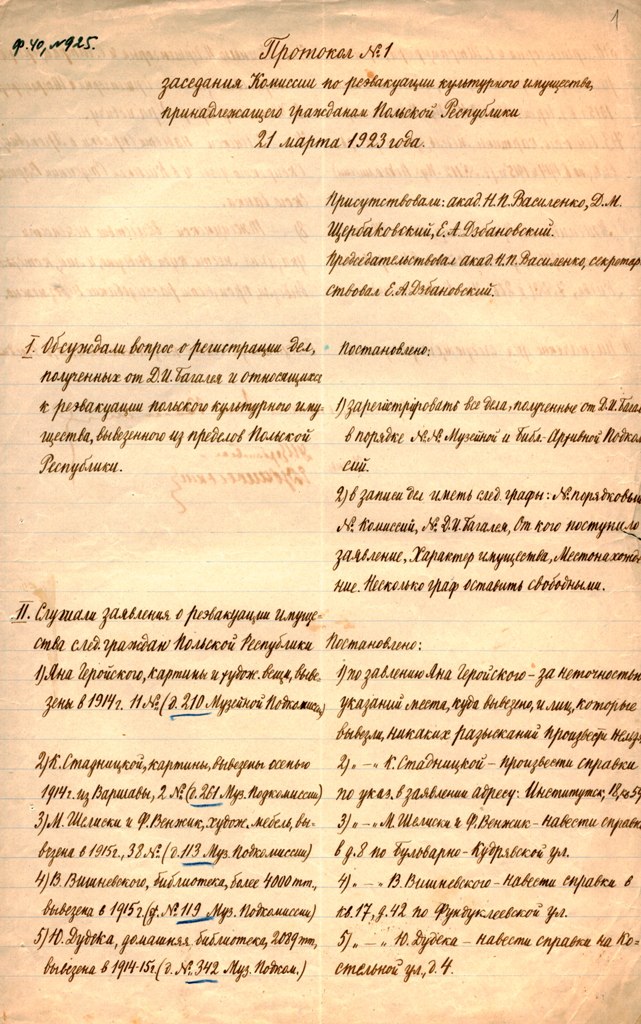 1
ф. 40, № 925.
Протокол №1
заседания Комиссии по реэвакуации культурного имущества,
принадлежащего гражданам Польской Республики
21 марта 1923 года.
Присутствовали: акад. Н.П. Василенко, Д.М.
Щербаковский, Е.А. Дзбановский.
Председательствовал акад. Н.П. Василенко, секретар
ствовал Е.А. Дзбановский.
I. Обсуждали вопрос о регистрации дел,
полученных от Д.И. Багалея и относящихся
к реэвакуации польского культурного иму-
щества, вывезенного из пределов Польской
Республики.
Постановлено:
1) зарегистрировать все дела, полученные от Д.И. Багал
в порядке №№ Музейной и Библ-Архивной Подком
сий.
2) в записи дел иметь след. графы: № порядковы
№ Комиссий, № Д.И. Багалея, От кого поступило
заявление, Характер имущества, Местонахожде
ние. Несколько граф оставить свободными.
II. Слушали заявления о реэвакуации имуще-
ства след. граждан Польской Республики
1) Яна Геройского, картины и худож. вещи, выве-
зены в 1914 г. 11 № (д. 210 Музейной Подкомисс)
2) К. Стадницкой, картины, вывезены осенью
1914 г. из Варшавы, 2 № (д. 261 Муз. Подкомиссии)
3) М. Шелиски и Ф. Венжик, худож. мебель, вы-
везена в 1915 г., 38 № (д. 113 Муз. Подкомиссии)
4) В. Вишневского, библиотека, более 4000 тт.,
вывезена в 1915 г. (д. № 119 Муз. Подкомиссии)
5) Ю. Дудека, домашняя, библиотека, 2089 тт,
вывезена в 1914-15 г. (д. № 342 Муз. Подком.)
Постановлено:
1) по завлению Яна Геройского - за неточность
указаний места, куда вывезено, и лиц, которые
вывезли, никаких разысканий произвести нельз
2) „ - „ К. Стадницкой - произвести справки
по указ. в заявлении адресу: Институтск, 18, кв 54
3) „ - „ М. Шелиски и Ф. Венжик - навести справк
в д. 8 по Бульварно-Кудрявской ул.
4) „ - „ В. Вишневского - навести справки в
кв. 17, д. 42 по Фундуклеевской ул.
5) „ - „ Ю. Дудека - навести справки на Ко-
стельной ул, д. 4.